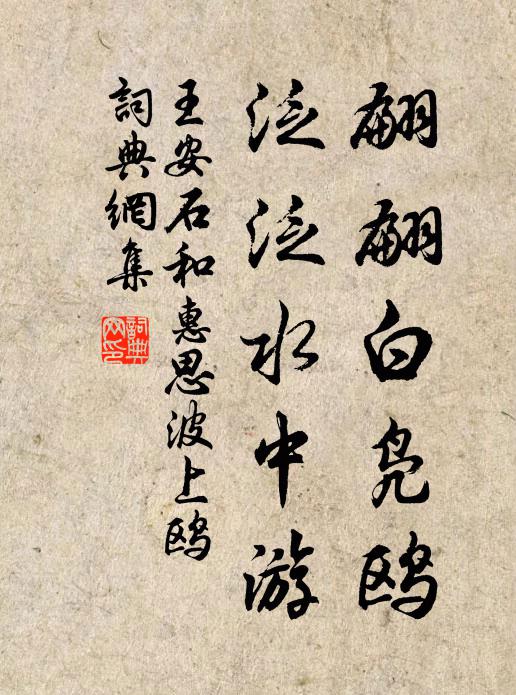 翩翩白凫鸥
泛泛水中游
王安石和惠思波上鸥
詞典網集
詞典
网印